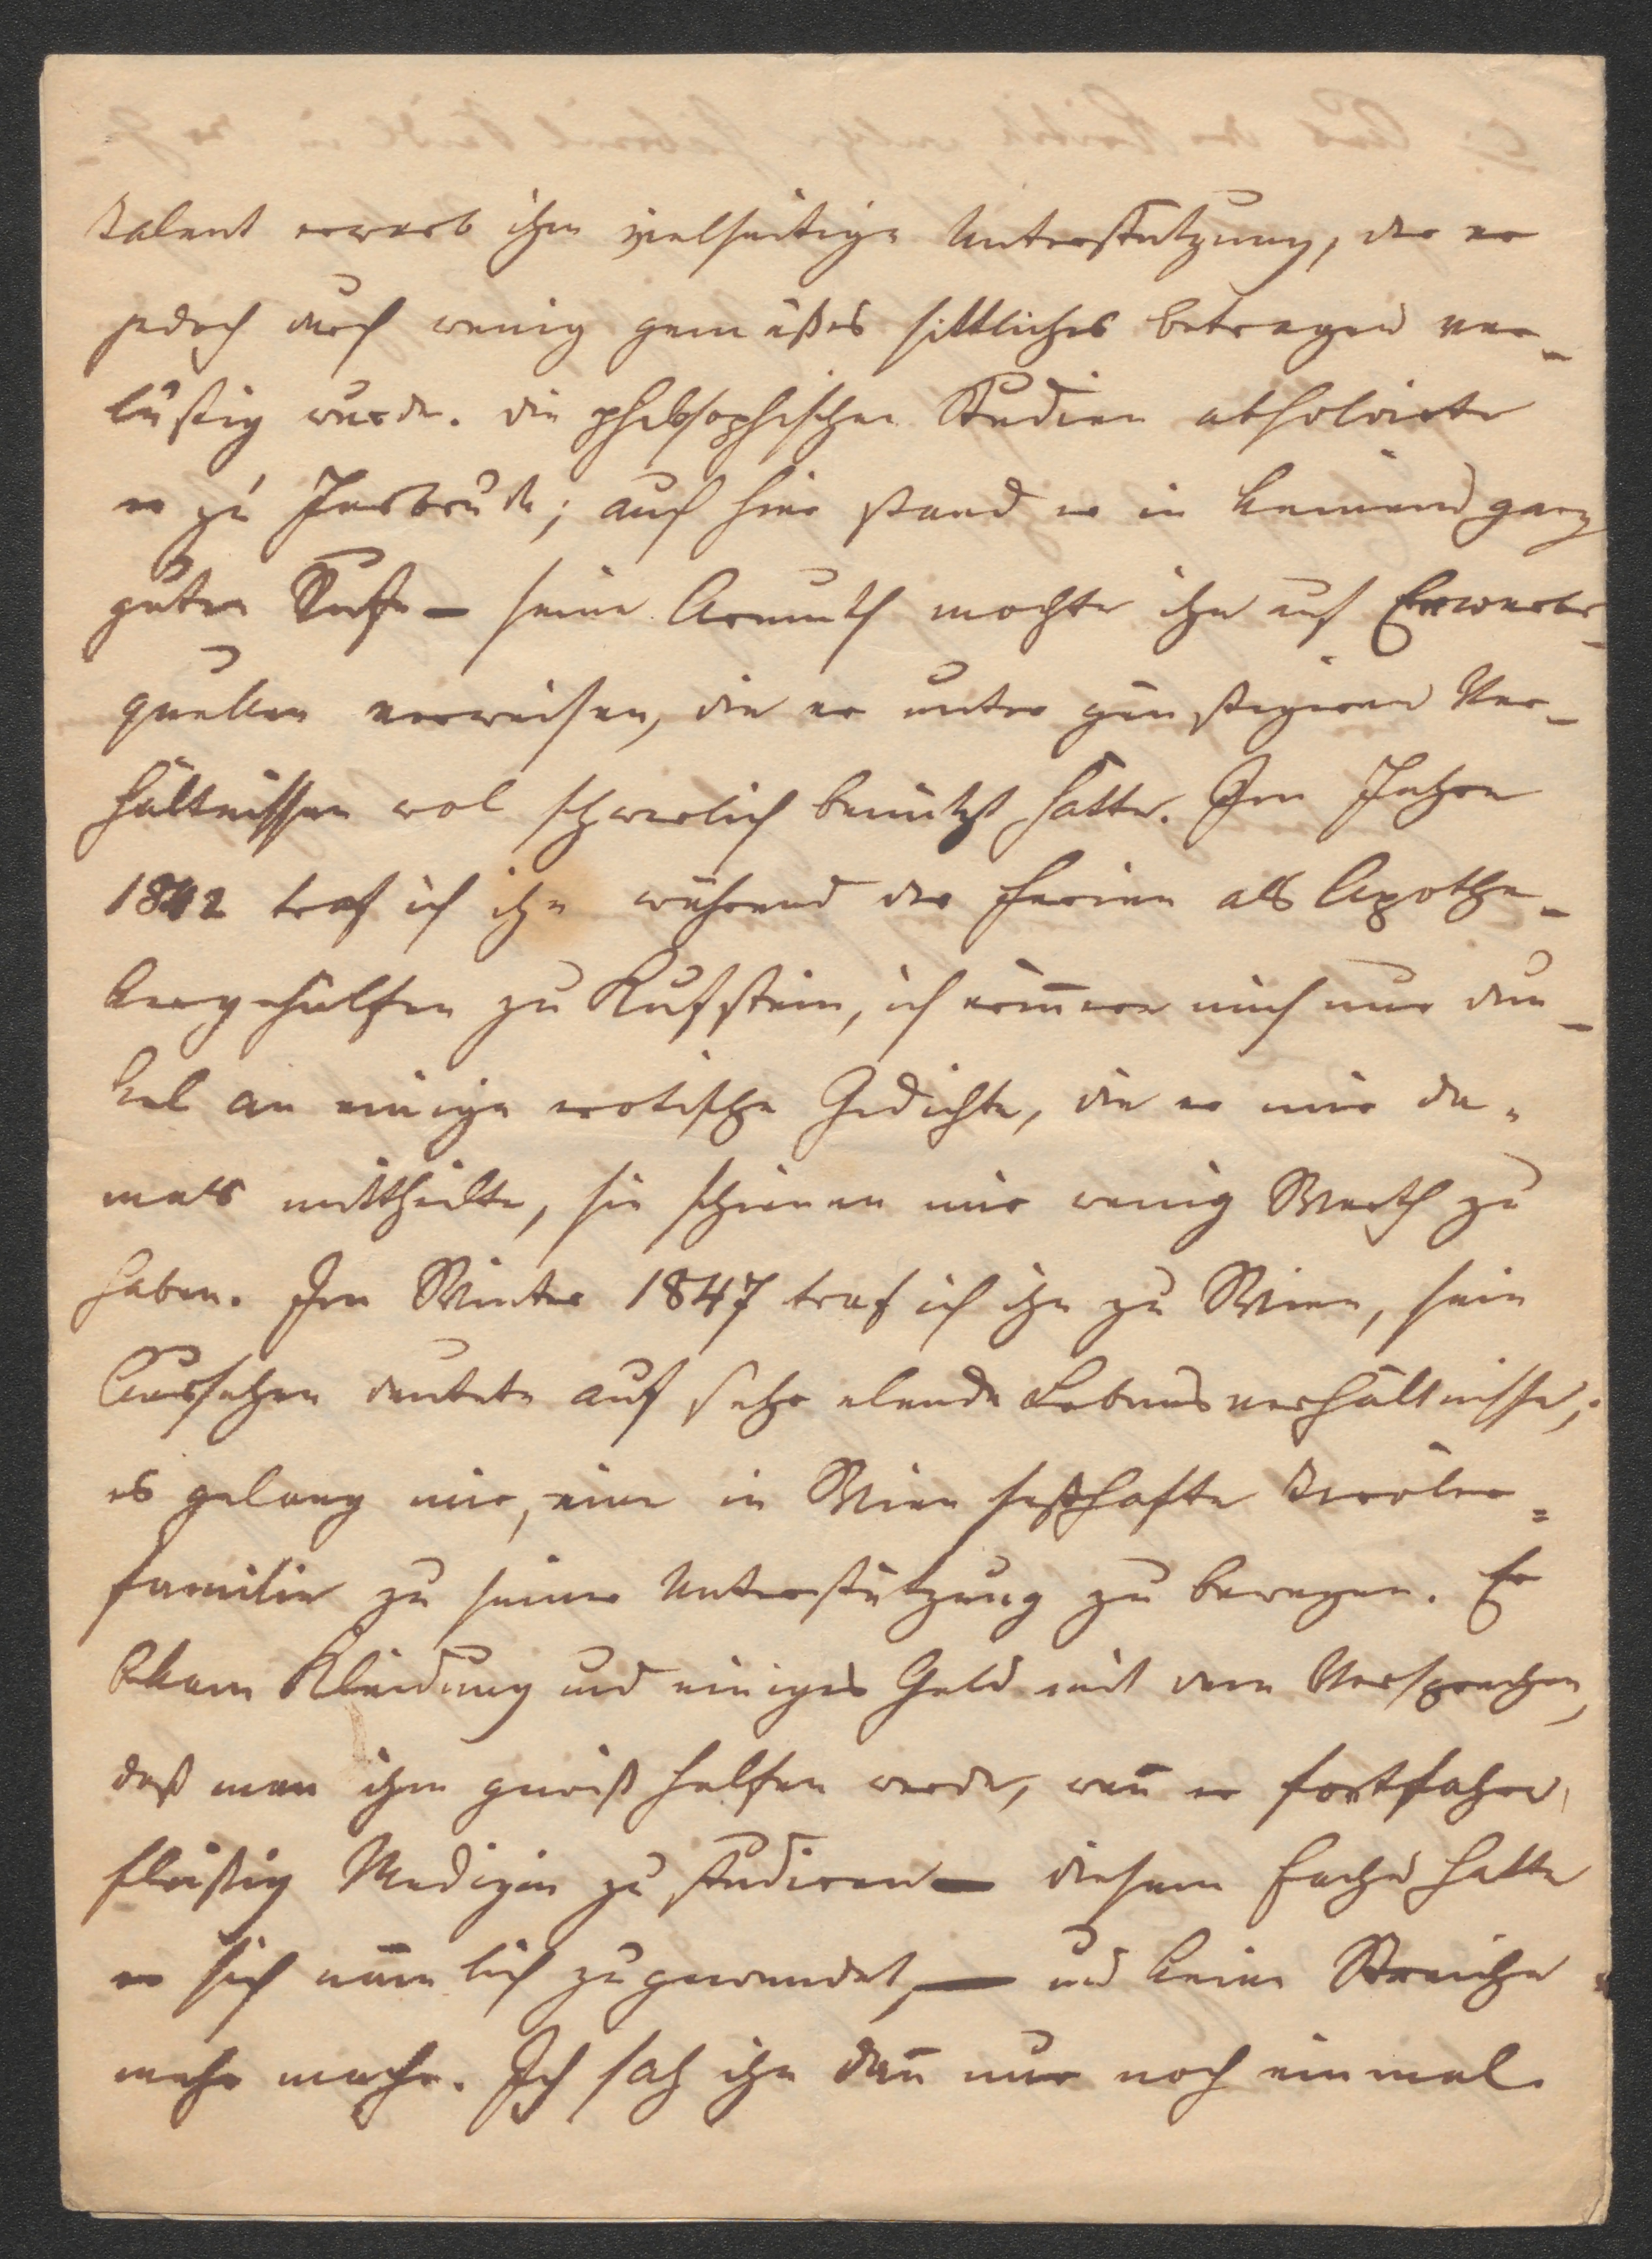 Talent erwarb ihm vielseitige Unterstützung, der er
jedoch durch wenig gemäßes sittliches betragen ver-
lustig wurde. die philosophischen Studien absolvirte
er zu Insbruck; auch hier stand er in keinem ganz
guten Rufe – seine Armuth mochte ihn auf Erwerbs-
quellen verweisen, die er unter günstigeren Ver-
hältnissen wol schwerlich benützt hätte. Im Jahre
1842 traf ich ihn während der Ferien als Apothe-
kergehülfen zu Kufstein, ich erinnere mich nur dun-
kel an einige erotische Gedichte, die er mir da-
mals mittheilte, sie schienen mir wenig Werth zu
haben. Im Winter 1847 traf ich ihn zu Wien, sein
Aussehen deutete auf sehr elende Lebensverhältnisse;
es gelang mir, eine in Wien seßhafte Tiroler=
familie zu seiner Unterstützung zu bewegen. Er
bekam Kleidung und einiges Geld mit dem Versprechen,
daß man ihm gewiß helfen werde, wen̄ er fortfahre,
fleißig Medizin zu studieren – diesem Fache hatte
er sich nämlich zugewendet, – und keine Streiche
mehr mache. Ich sah ihn dan̄ nur noch einmal